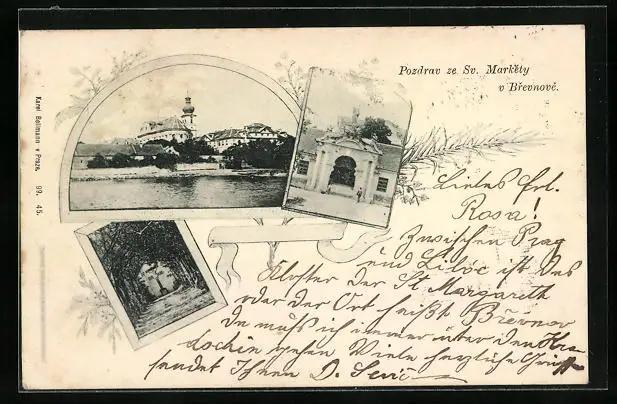 Pozdrav ze Sv. Markéty
v Břevnově.
Karel Bellmann v Praze. 99. 45.
Liebes Frl.
Rosa!
Zwischen Prag
und Liboc ist das
Kloster der St Margareth
oder der Ort heißt Břevnov
Da muß ich immer über den
gehen Viele herzliche Grüße
sendet Ihnen D.